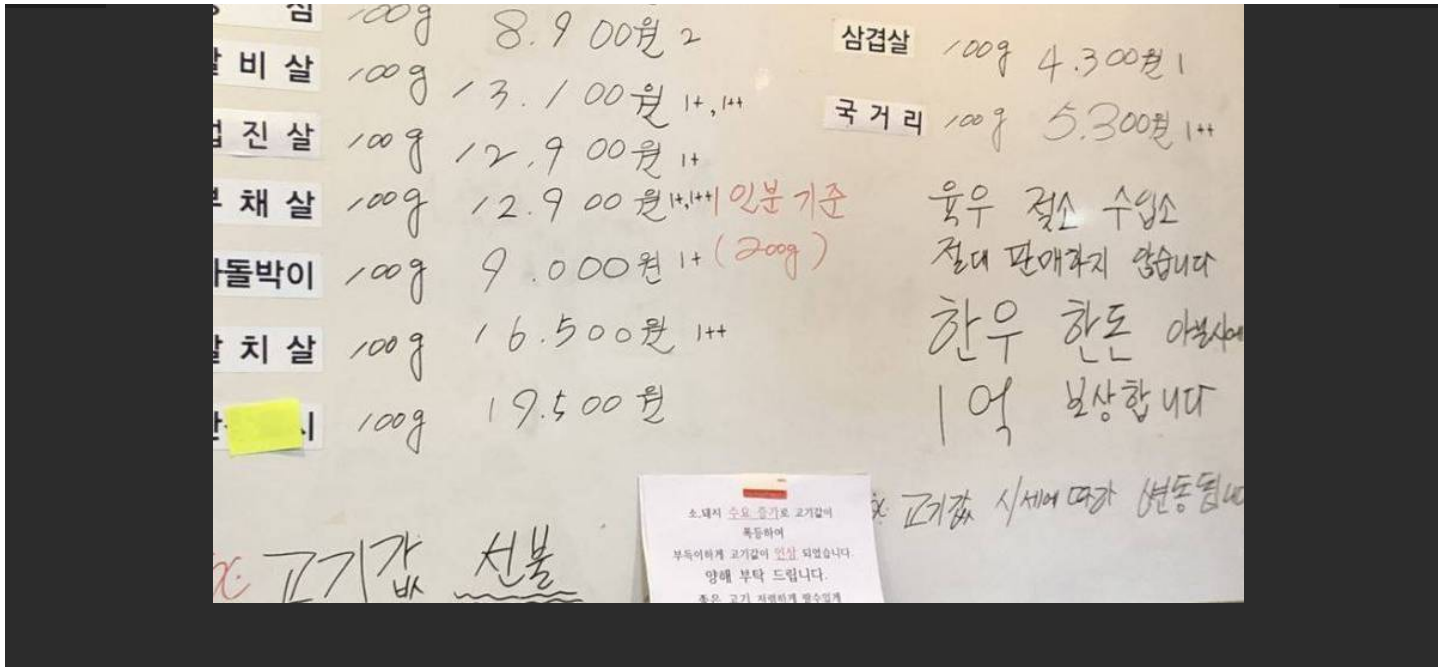 심 100g 8.900원 2
비 살 100g 13.100원 1+, 1++
진 살 100g 12.900원 1+
채 살 100g 12.900원 1+,1++ 1인분 기준
(200g)
돌박이 100g 9.000원 1+
치 살 100g 16.500원 1++
100g 19.500원
※ 고기값 선불
삼겹살 100g 4.300원 1
국 거 리 100g 5.300원 1++
육우 젖소 수입소
절대 판매하지 않습니다
한우 한돈 아닐시에
1억 보상합니다
※ 고기값 시세에 따라 변동됩니
소.돼지 수요 증가로 고기값이
폭등하여
부득이하게 고기값이 인상 되었습니다.
양해 부탁 드립니다.
좋은 고기 저렴하게 팔수있게